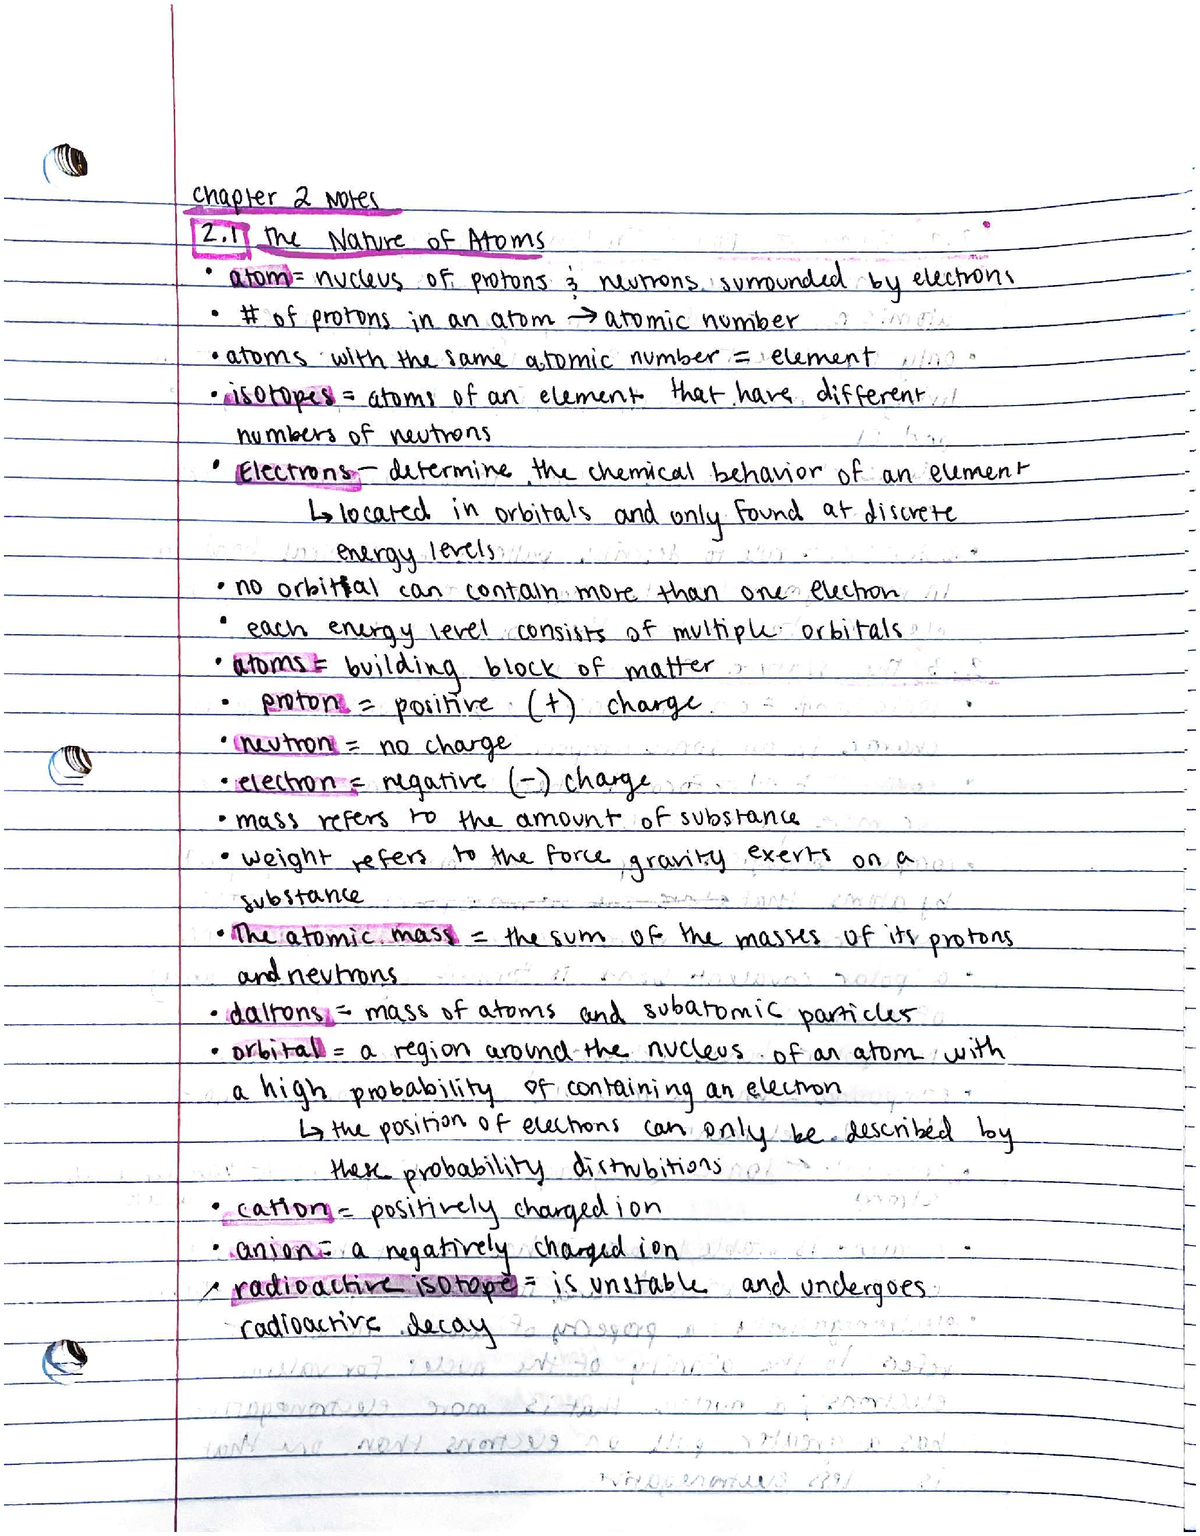 Chapter 2 Notes
2.1 The Nature of Atoms
• atom = nucleus of protons & neutrons surrounded by electrons
• # of protons in an atom → atomic number
• atoms with the same atomic number = element
• isotopes = atoms of an element that have different
numbers of neutrons
• Electrons - determine the chemical behavior of an element
↳ located in orbitals and only found at discrete
energy levels
• no orbital can contain more than one electron
• each energy level consists of multiple orbitals
• atoms = building block of matter
• proton = positive (+) charge
• neutron = no charge
• electron = negative (-) charge
• mass refers to the amount of substance
• weight refers to the force gravity exerts on a
substance
• The atomic mass = the sum of the masses of its protons
and neutrons
• daltons = mass of atoms and subatomic particles
• orbital = a region around the nucleus of an atom with
a high probability of containing an electron
↳ the position of electrons can only be described by
these probability distrubitions
• cation = positively charged ion
• anion = a negatively charged ion
• radioactive isotope = is unstable and undergoes
radioactive decay